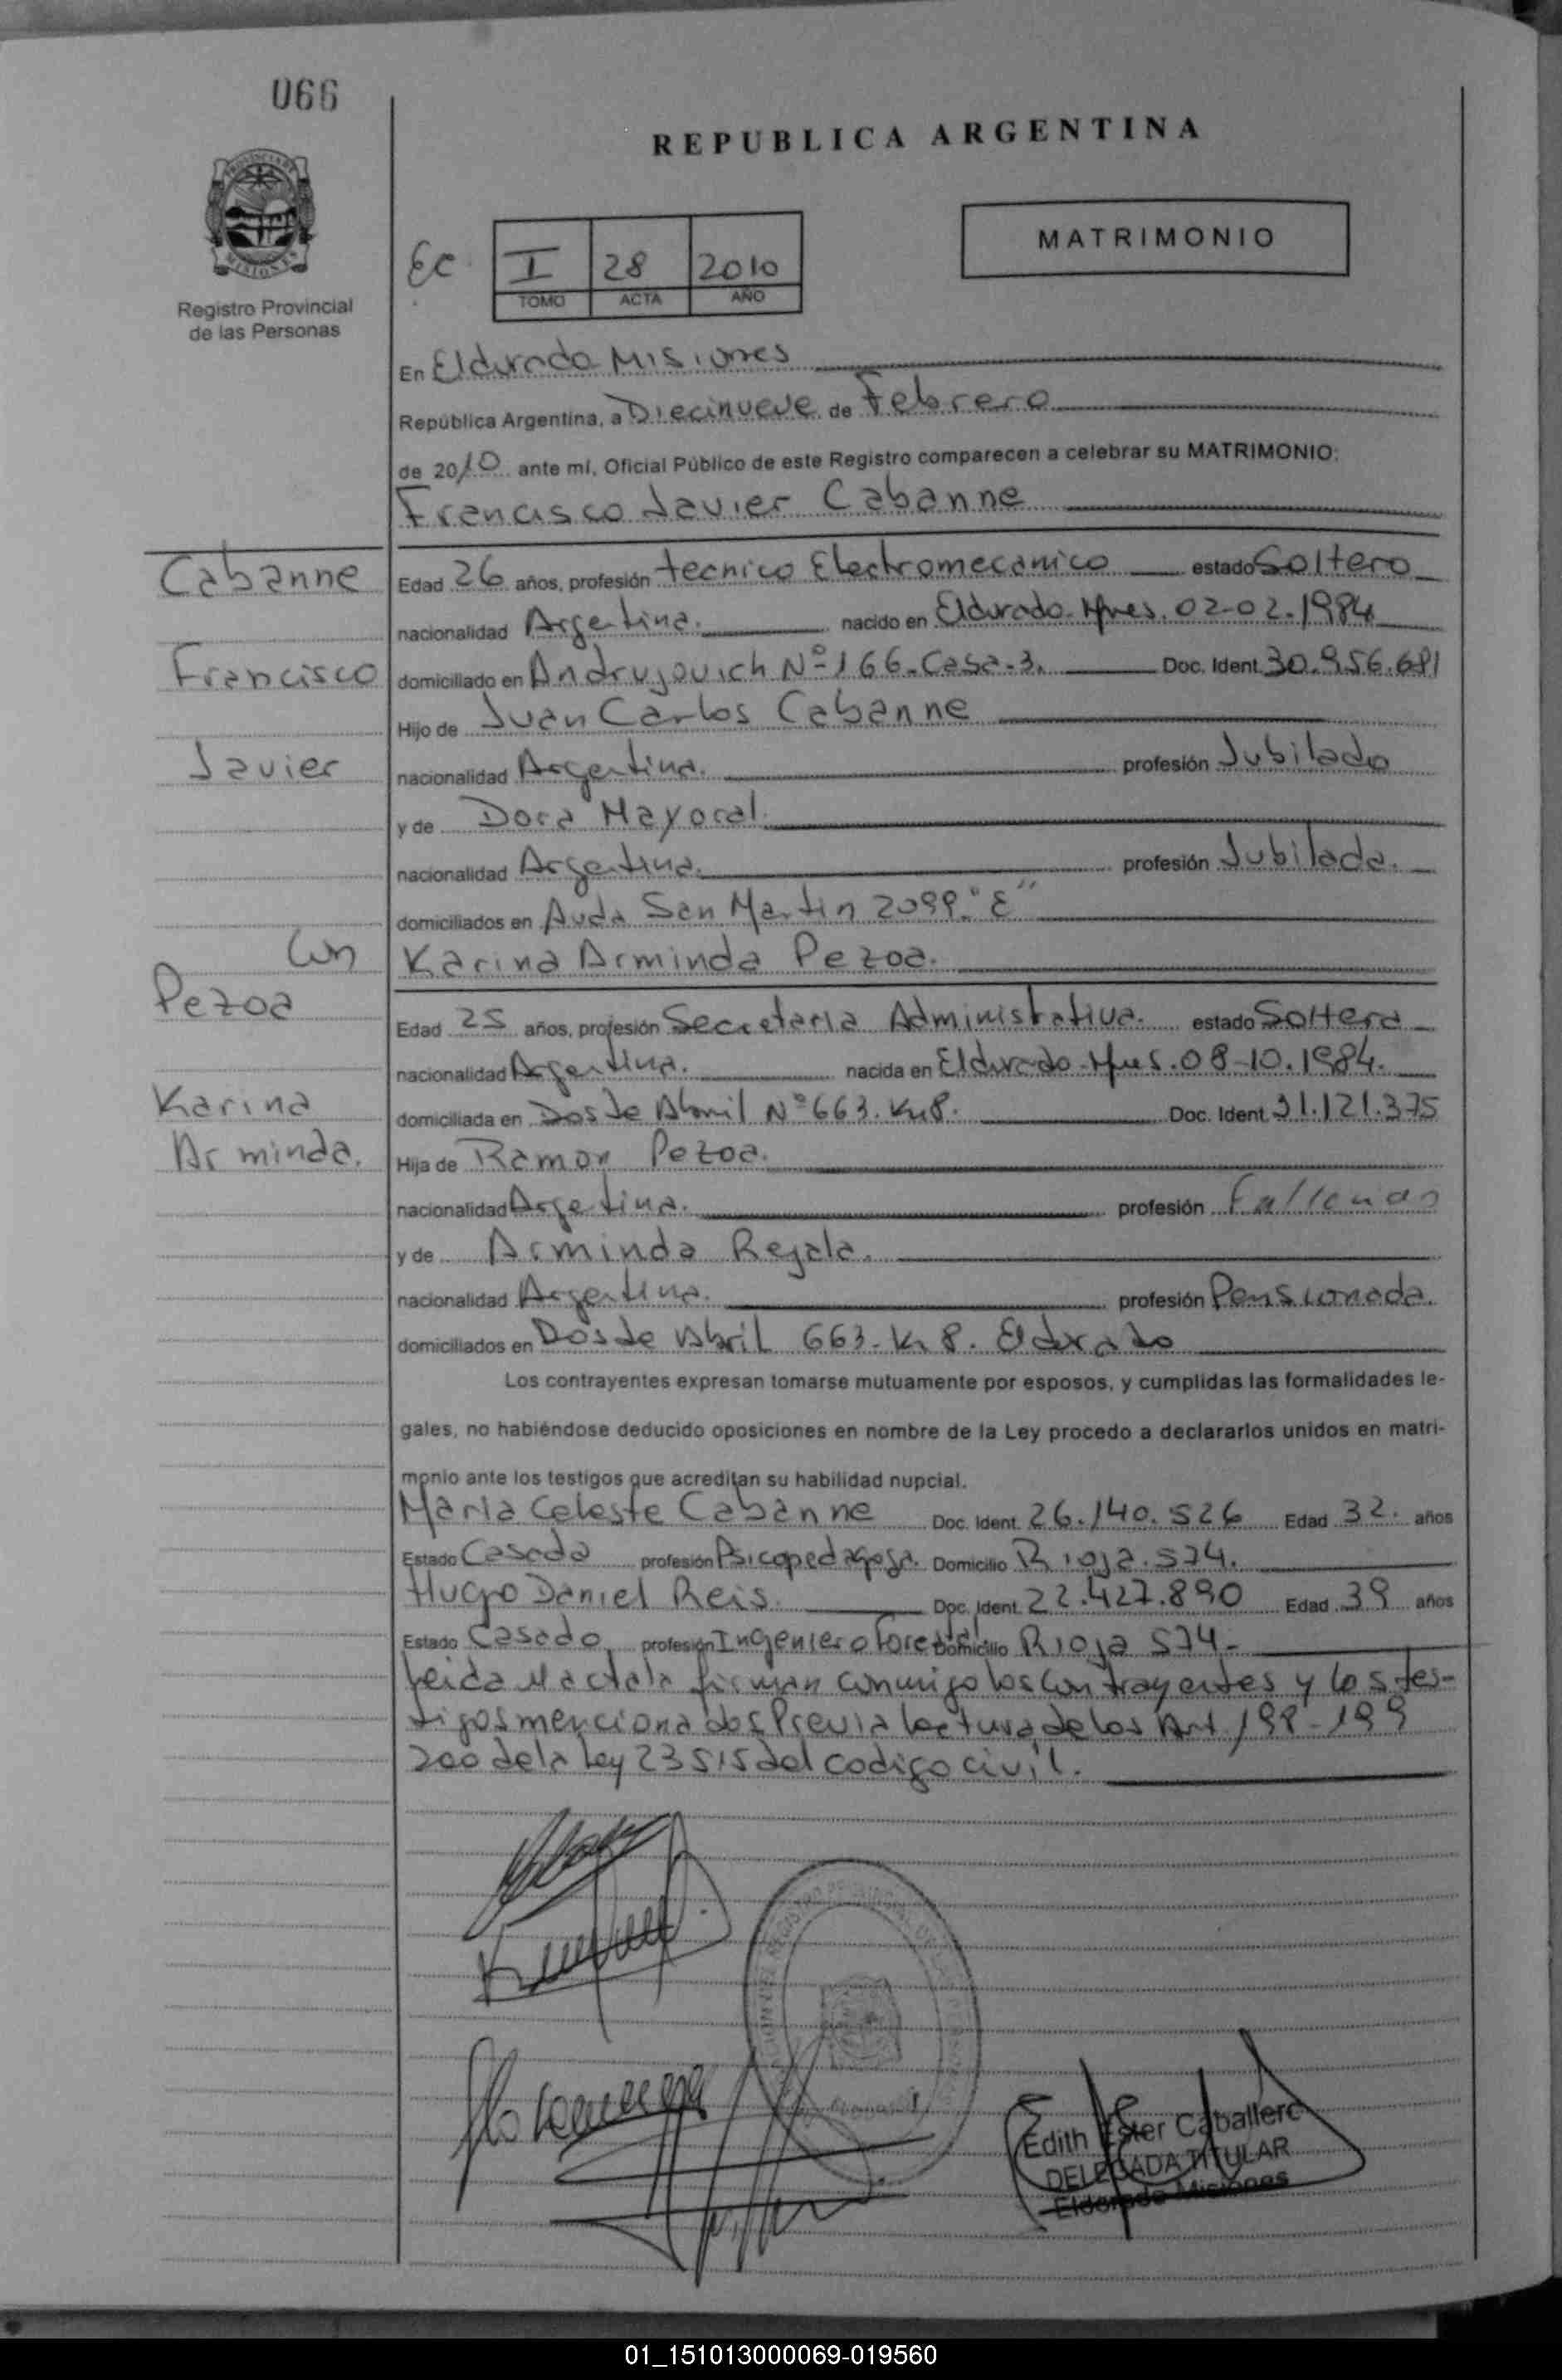 066
REPUBLICA ARGENTINA
PROVINCIA DE
MISIONES
Registro Provincial
de las Personas
EC
I 28 2010
TOMO ACTA AÑO
MATRIMONIO
En Eldorado Misiones
República Argentina, a Diecinueve de Febrero
de 2010 ante mí, Oficial Público de este Registro comparecen a celebrar su MATRIMONIO:
Francisco Javier Cabanne
Cabanne
Francisco
Javier
Edad 26 años, profesión tecnico Electromecanico estado Soltero
nacionalidad Argentina. nacido en Eldorado-Mnes. 02-02.1984
domiciliado en Andrujovich Nº 166-Casa-3. Doc. Ident. 30.956.681
Hijo de Juan Carlos Cabanne
nacionalidad Argentina. profesión Jubilado
y de Dora Mayoral
nacionalidad Argentina. profesión Jubilada.
domiciliados en Avda San Martin 2099 "E"
Con
Karina Arminda Pezoa.
Pezoa
Karina
Arminda.
Edad 25 años, profesión Secretaria Administrativa. estado Soltera
nacionalidad Argentina. nacida en Eldorado-Mnes. 08-10.1984.
domiciliada en Dos de Abril Nº 663. Km8. Doc. Ident. 31.121.375
Hija de Ramon Pezoa.
nacionalidad Argentina. profesión
y de Arminda Rejala.
nacionalidad Argentina. profesión Pensionada.
domiciliados en Dos de Abril 663-Km 8. Eldorado
Los contrayentes expresan tomarse mutuamente por esposos, y cumplidas las formalidades le-
gales, no habiéndose deducido oposiciones en nombre de la Ley procedo a declararlos unidos en matri-
monio ante los testigos que acreditan su habilidad nupcial.
Maria Celeste Cabanne Doc. Ident. 26.140.526 Edad 32. años
Estado Casada profesión Psicopedagoga. Domicilio Rioja.574.
Hugo Daniel Reis Doc. Ident. 22.427.890 Edad 39 años
Estado Casado profesión Ingeniero Forestal Domicilio Rioja 574-
Leida el acta la firman conmigo los contrayentes y los tes-
tigos mencionados Previa lectura de los Art 198-199
200 de la Ley 23515 del codigo civil.
Edith Ester Caballero
DELEGADA TITULAR
Eldorado Misiones
01_151013000069-019560